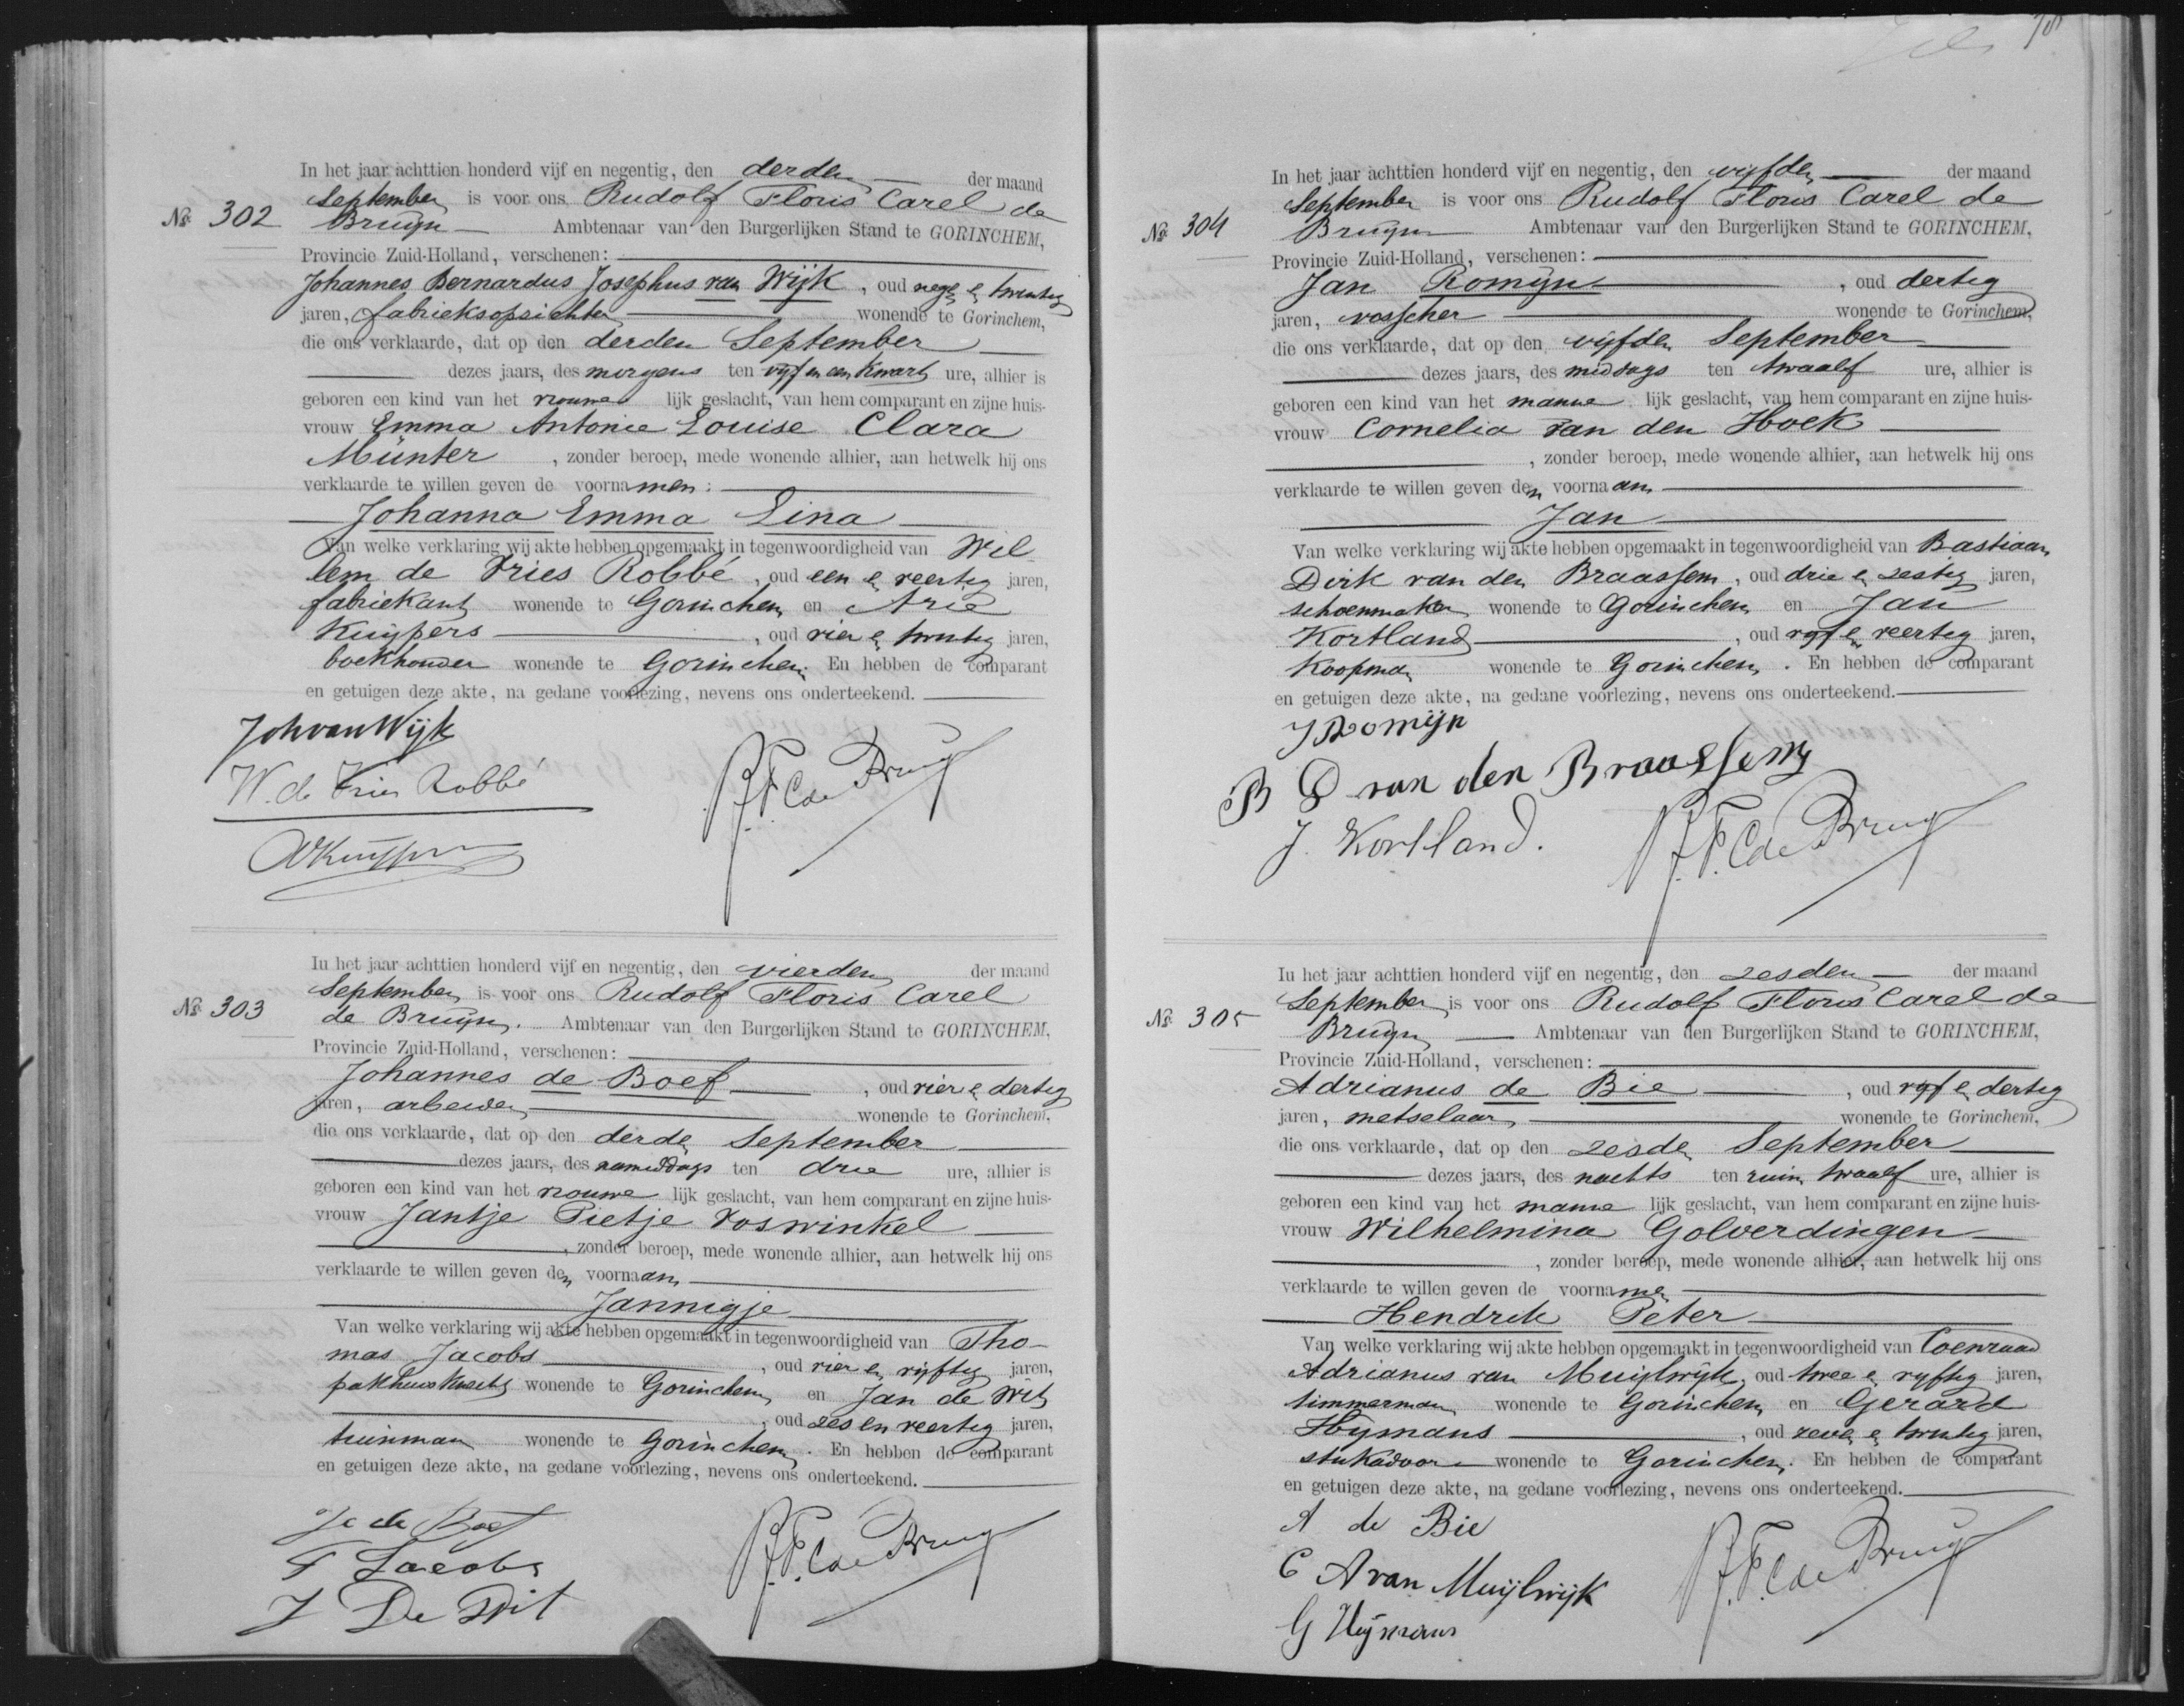 78
In het jaar achttien honderd vijf en negentig, den derden der maand
September is voor ons Rudolf Floris Carel de
No 302 Bruijn Ambtenaar van den Burgerlijken Stand te GORINCHEM,
Provincie Zuid-Holland, verschenen:
Johannes Bernardus Josephus van Wijk, oud negen en twintig
jaren, fabrieksopzichter wonende te Gorinchem,
die ons verklaarde, dat op den derden September
dezes jaars, des morgens ten vijf en een kwart ure, alhier is
geboren een kind van het vrouwe lijk geslacht, van hem comparant en zijne huis-
vrouw Emma Antonie Louise Clara
Münter, zonder beroep, mede wonende alhier, aan hetwelk hij ons
verklaarde te willen geven de voornamen:
Johanna Emma Lina
Van welke verklaring wij akte hebben opgemaakt in tegenwoordigheid van Wil
lem de Vries Robbé, oud een en veertig jaren,
fabriekant wonende te Gorinchem en Arie
Kuijpers, oud vier en twintig jaren,
boekhouder wonende te Gorinchem. En hebben de comparant
en getuigen deze akte, na gedane voorlezing, nevens ons onderteekend.
Joh van Wijk
W. de Vries Robbé
AKuijpers
R.F.C. de Bruijn
In het jaar achttien honderd vijf en negentig, den vierden der maand
September is voor ons Rudolf Floris Carel
No 303 de Bruijn. Ambtenaar van den Burgerlijken Stand te GORINCHEM,
Provincie Zuid-Holland, verschenen:
Johannes de Boef, oud vier en dertig
jaren, arbeider wonende te Gorinchem,
die ons verklaarde, dat op den derden September
dezes jaars, des namiddags ten drie ure, alhier is
geboren een kind van het vrouwe lijk geslacht, van hem comparant en zijne huis-
vrouw Jantje Pietje Voswinkel
, zonder beroep, mede wonende alhier, aan hetwelk hij ons
verklaarde te willen geven den voornaam
Jannigje
Van welke verklaring wij akte hebben opgemaakt in tegenwoordigheid van Tho-
mas Jacobs, oud vier en vijftig jaren,
pakhuisknecht wonende te Gorinchem en Jan de Wit
, oud zes en veertig jaren,
tuinman wonende te Gorinchem. En hebben de comparant
en getuigen deze akte, na gedane voorlezing, nevens ons onderteekend.
J de Boef
T Jacobs
J De Wit
R.F.C. de Bruijn
In het jaar achttien honderd vijf en negentig, den vijfden der maand
September is voor ons Rudolf Floris Carel de
No 304 Bruijn Ambtenaar van den Burgerlijken Stand te GORINCHEM,
Provincie Zuid-Holland, verschenen:
Jan Romijn, oud dertig
jaren, visscher wonende te Gorinchem,
die ons verklaarde, dat op den vijfden September
dezes jaars, des middags ten twaalf ure, alhier is
geboren een kind van het manne lijk geslacht, van hem comparant en zijne huis-
vrouw Cornelia van den Hoek
, zonder beroep, mede wonende alhier, aan hetwelk hij ons
verklaarde te willen geven den voornaam
Jan
Van welke verklaring wij akte hebben opgemaakt in tegenwoordigheid van Bastiaan
Dirk van den Braassem, oud drie en zestig jaren,
schoenmaker wonende te Gorinchem en Jan
Kortland, oud vijf en veertig jaren,
koopman wonende te Gorinchem. En hebben de comparant
en getuigen deze akte, na gedane voorlezing, nevens ons onderteekend.
J Romijn
B D van den Braassem
J. Kortland.
R.F.C. de Bruijn
In het jaar achttien honderd vijf en negentig, den zesden der maand
September is voor ons Rudolf Floris Carel de
No 305 Bruijn Ambtenaar van den Burgerlijken Stand te GORINCHEM,
Provincie Zuid-Holland, verschenen:
Adrianus de Bie, oud vijf en dertig
jaren, metselaar, wonende te Gorinchem,
die ons verklaarde, dat op den zesden September
dezes jaars, des nachts ten ruim twaalf ure, alhier is
geboren een kind van het manne lijk geslacht, van hem comparant en zijne huis-
vrouw Wilhelmina Golverdingen
, zonder beroep, mede wonende alhier, aan hetwelk hij ons
verklaarde te willen geven de voornamen
Hendrik Peter
Van welke verklaring wij akte hebben opgemaakt in tegenwoordigheid van Coenraad
Adrianus van Muijlwijk, oud twee en vijftig jaren,
timmerman wonende te Gorinchem en Gerard
Hijmans, oud zeven en twintig jaren,
stukadoor wonende te Gorinchem. En hebben de comparant
en getuigen deze akte, na gedane voorlezing, nevens ons onderteekend.
A de Bie
C A van Muijlwijk
G Hijmans
R.F.C. de Bruijn